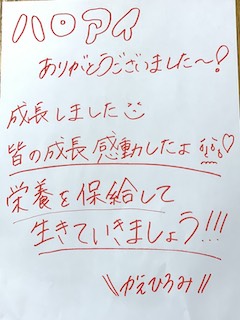 ハロアイ
ありがとうございました〜!
成長しました
皆の成長感動したよ♡
栄養を保給して
生きていきましょう!!!
\\かえひろみ//